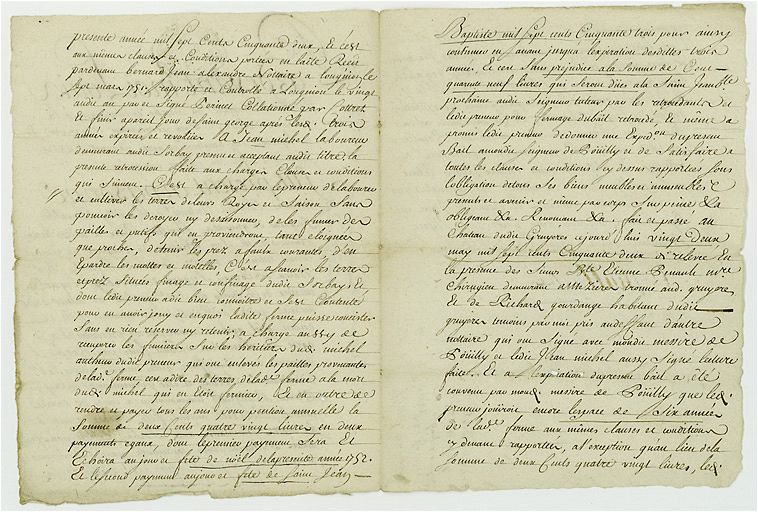 presente année mil sept Cents Cinquante deux, Et c'est
aux memes clauses et Conditions portées en laditte
pardevant bernard jean alexandre Notaire a Longuion, le
sept mars 1751. rapporté et Controllé a Longuion le vingt
audit an par et Signé Collationné par
Et finir a pareil jour de saint george apres lesd. trois
années expirées et revolues A Jean michel laboureur
demeurant audit Sorbay present et acceptant audit titre, la
presente retrocession faite aux charges Clauses et conditions
qui suivent. C'est a charge par le preneur de labourer
et cultiver les terres de leurs Royes et Saison Sans
pouvoir les deroyer ny dessaisonner, de les fumer des
pailles et qu'il en proviendront, tant eloignées
que proches, de tenir les prez a faulx courantes, d'en
Epardre les mottes et C'est a sçavoir les terres
et prez Scitués finage et confinage dudit Sorbay &
dont ledit preneur a dit bien connoitre et s'est Contenté
pour en avoir jouy et en quoi ladite ferme puisse consister
Sans en rien reserver ny retenir, a charge aussy de
recuperer les fumiers Sur les heritiers dud. michel
dudit preneur qui ont enlevés les pailles provenantes
de lad. ferme des terres de lad. ferme a la mort
dud. michel qui en étoit fermier, Et en outre de
rendre et payer tous les ans pour pention annuelle la
Somme de deux Cents quatre vingt livres en deux
payements egaux, dont le premier payement Sera Et
Echoira au jour et fête de noël de la presente année 1752.
Et le second payement au jour et fête de saint Jean
Baptiste mil Sept cents Cinquante trois pour ainsy
continuer en Suivant jusqu'a l'expiration desdittes trois
années, Et ce Sans prejudice a la Somme de Cent
quarante neuf livres qui Seront dües a la Saint Jean Bte
prochaine audit Seigneur tuteur par les retrocedants Et
ledit preneur pour fermage du bail retrocedé, Et meme a
promis ledit preneur de donner une Expedon du present
Bail a mondit Seigneur de Pouilly et de Satisfaire a
toutes les clauses et conditions cy dessus rapportées Sous
l'obligation de tous Ses biens meubles et immeubles
presens et avenir et meme par corps Sur peine &a
obligeant &a Renonçant &a. fait et passé au
Chateau dudit Gruyeres ce jourd'huis vingt deux
may mil Sept cents Cinquante deux de relevée En
la presence des Sieurs Etienne Renault
Chirurgien demeurant a aud. gruyere
Et de Richard gourdange habitant dudit
gruyere temoins par moi pris au deffaut d'autre
nottaire qui ont Signé avec mondit messire de
Pouilly et ledit Jean michel aussy Signé lecture
faite. Et a l'expiration du present bail a été
convenu par mond. messire de Pouilly que led.
preneur jouiroit encore l'espace de Six années
de lad. ferme aux mêmes clauses et conditions
cy devant rapportées, a l'exception qu'au lieu de la
somme de deux Cents quatre vingt livres, led.